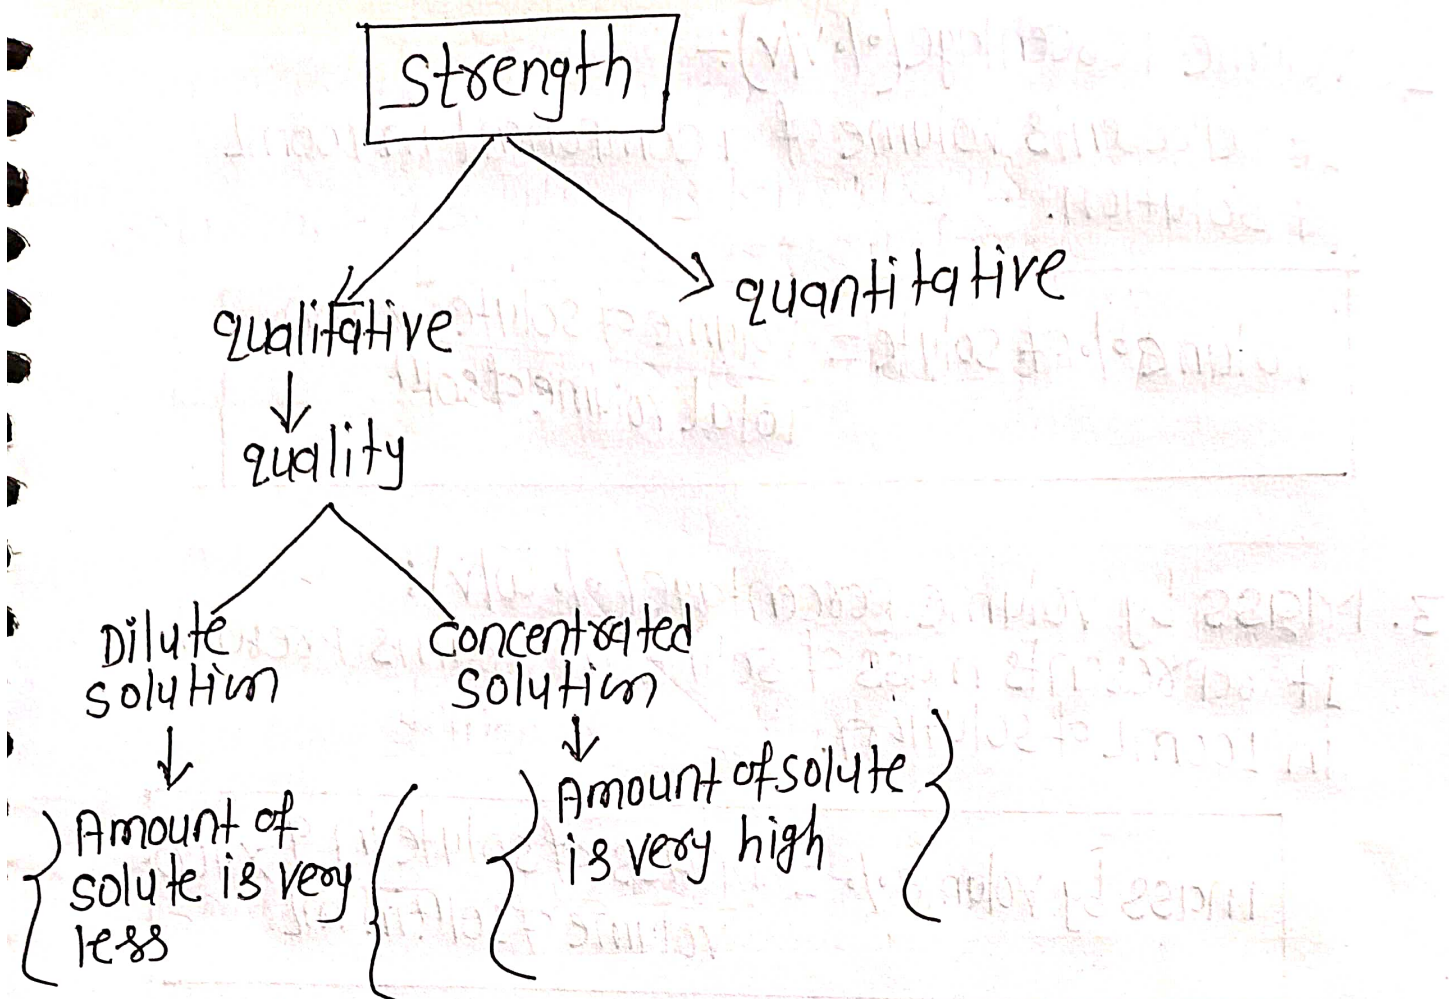 Strength
qualitative
quantitative
quality
Dilute
solution
concentrated
solution
Amount of
solute is very
less
Amount of solute
is very high